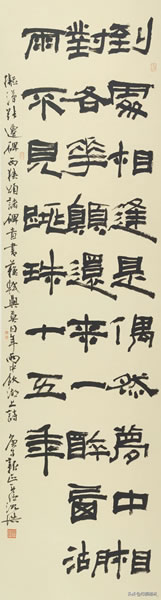 到處相逢是偶然夢中相
對各華顛還來一醉西湖
雨不見跳珠十五年
擬漢張遷碑西狹頌諸碑意書蘇軾與莫同年雨中飲湖上詩